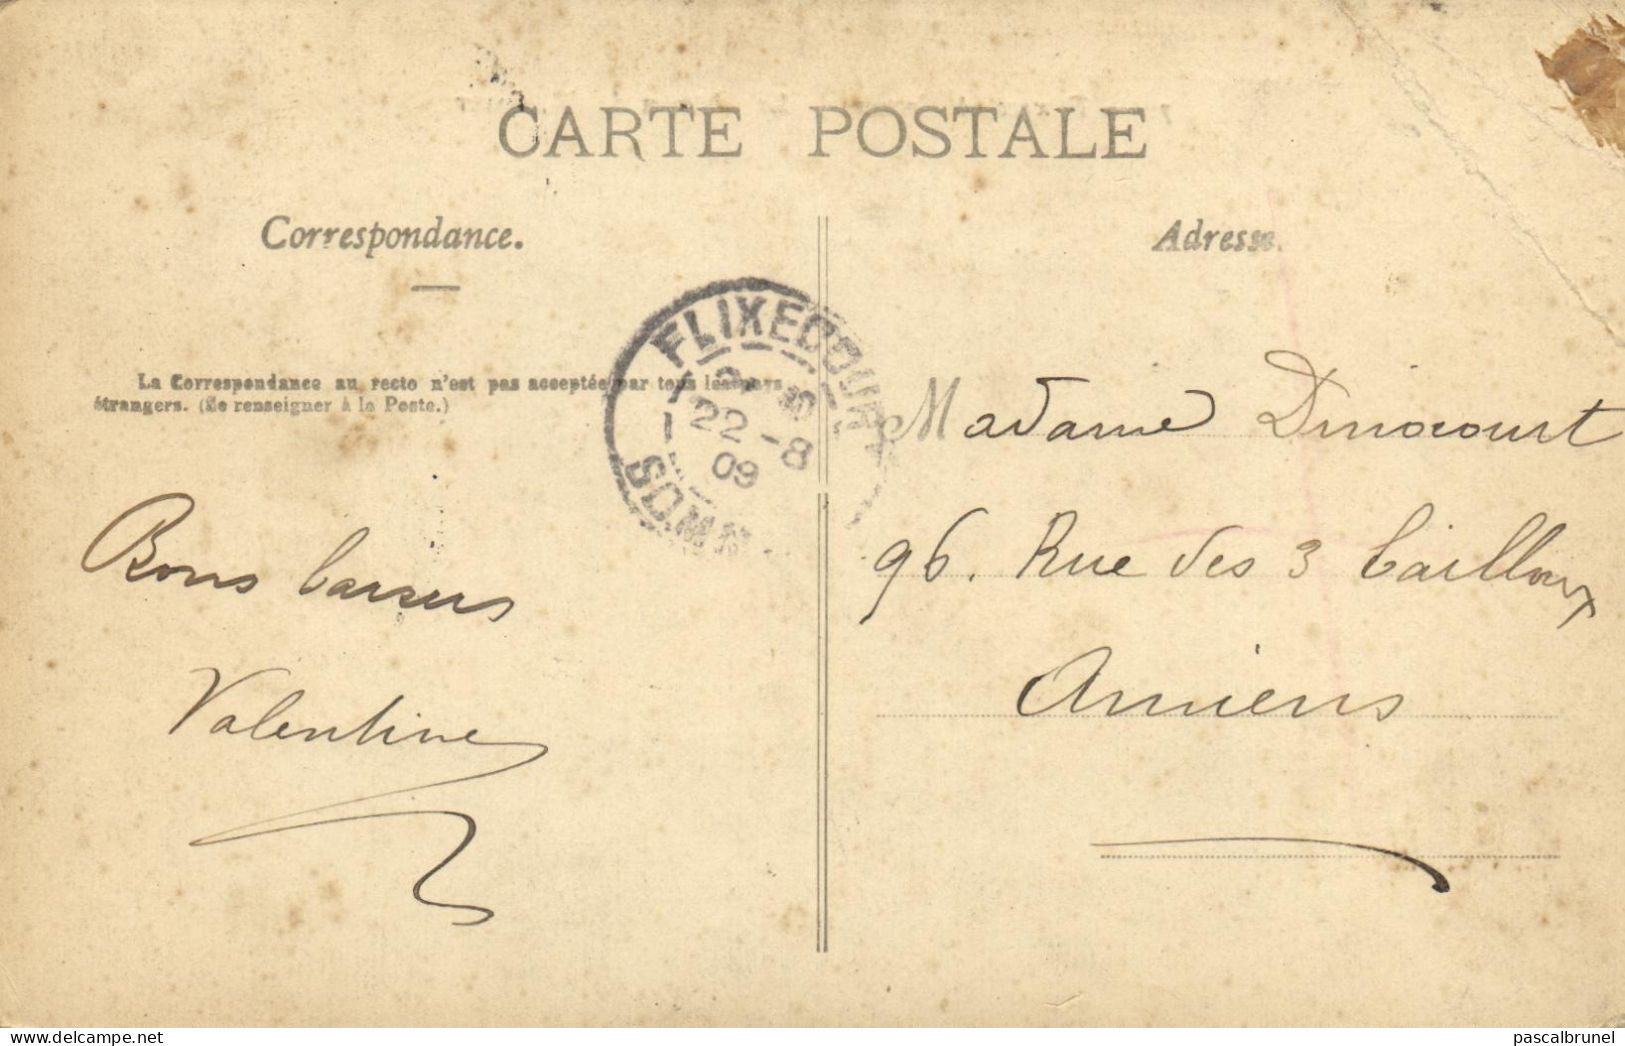 CARTE POSTALE
Correspondance.
Adresse.
La Correspondance au recto n'est pas acceptée par tous les pays
étrangers. (Se renseigner à la Poste.)
FLIXECOURT
22 - 8
09
SOMME
Madame Dinocourt
96. Rue des 3 Cailloux
Amiens
Bons baisers
Valentine
delcampe.net
pascalbrunel